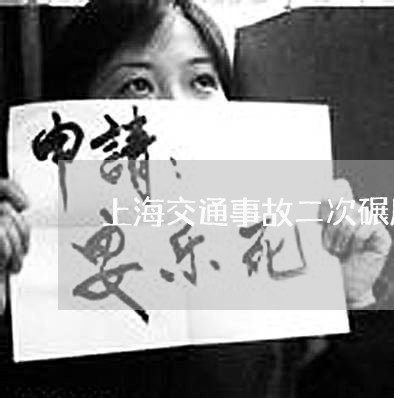 申請：
上海交通事故二次碾
要乐死